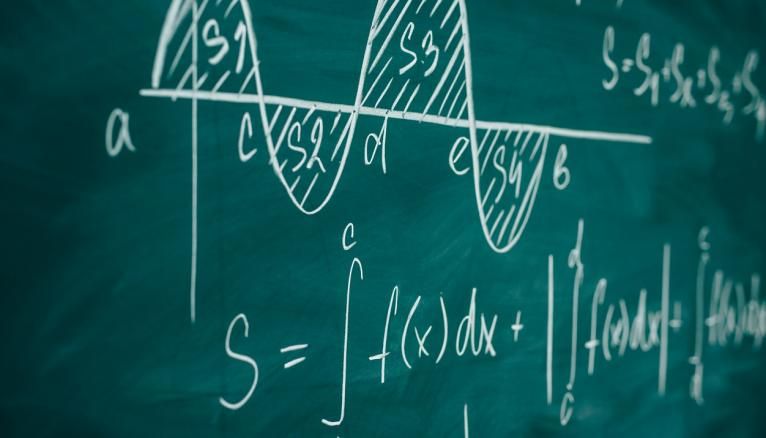 S1 S3
S=S₁+S₂+S₃+S₄
a c S2 d e S4 b
S = ∫ᶜ f(x)dx + |∫_c^d f(x)dx| + ∫_d^e f(x)dx